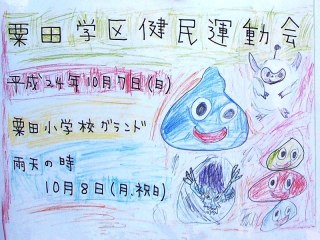 粟田学区健民運動会
平成24年10月7日(日)
粟田小学校グランド
雨天の時
10月8日(月、祝日)